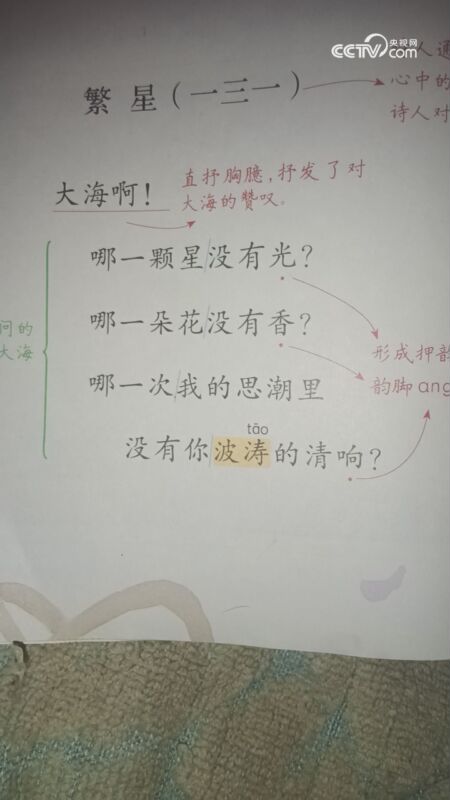 CCTV 央视网 com
人通
繁星（一三一）
心中的
诗人对
大海啊！
直抒胸臆，抒发了对
大海的赞叹。
哪一颗星没有光？
问的
大海
哪一朵花没有香？
形成押韵
韵脚ang
哪一次我的思潮里
tāo
没有你波涛的清响？